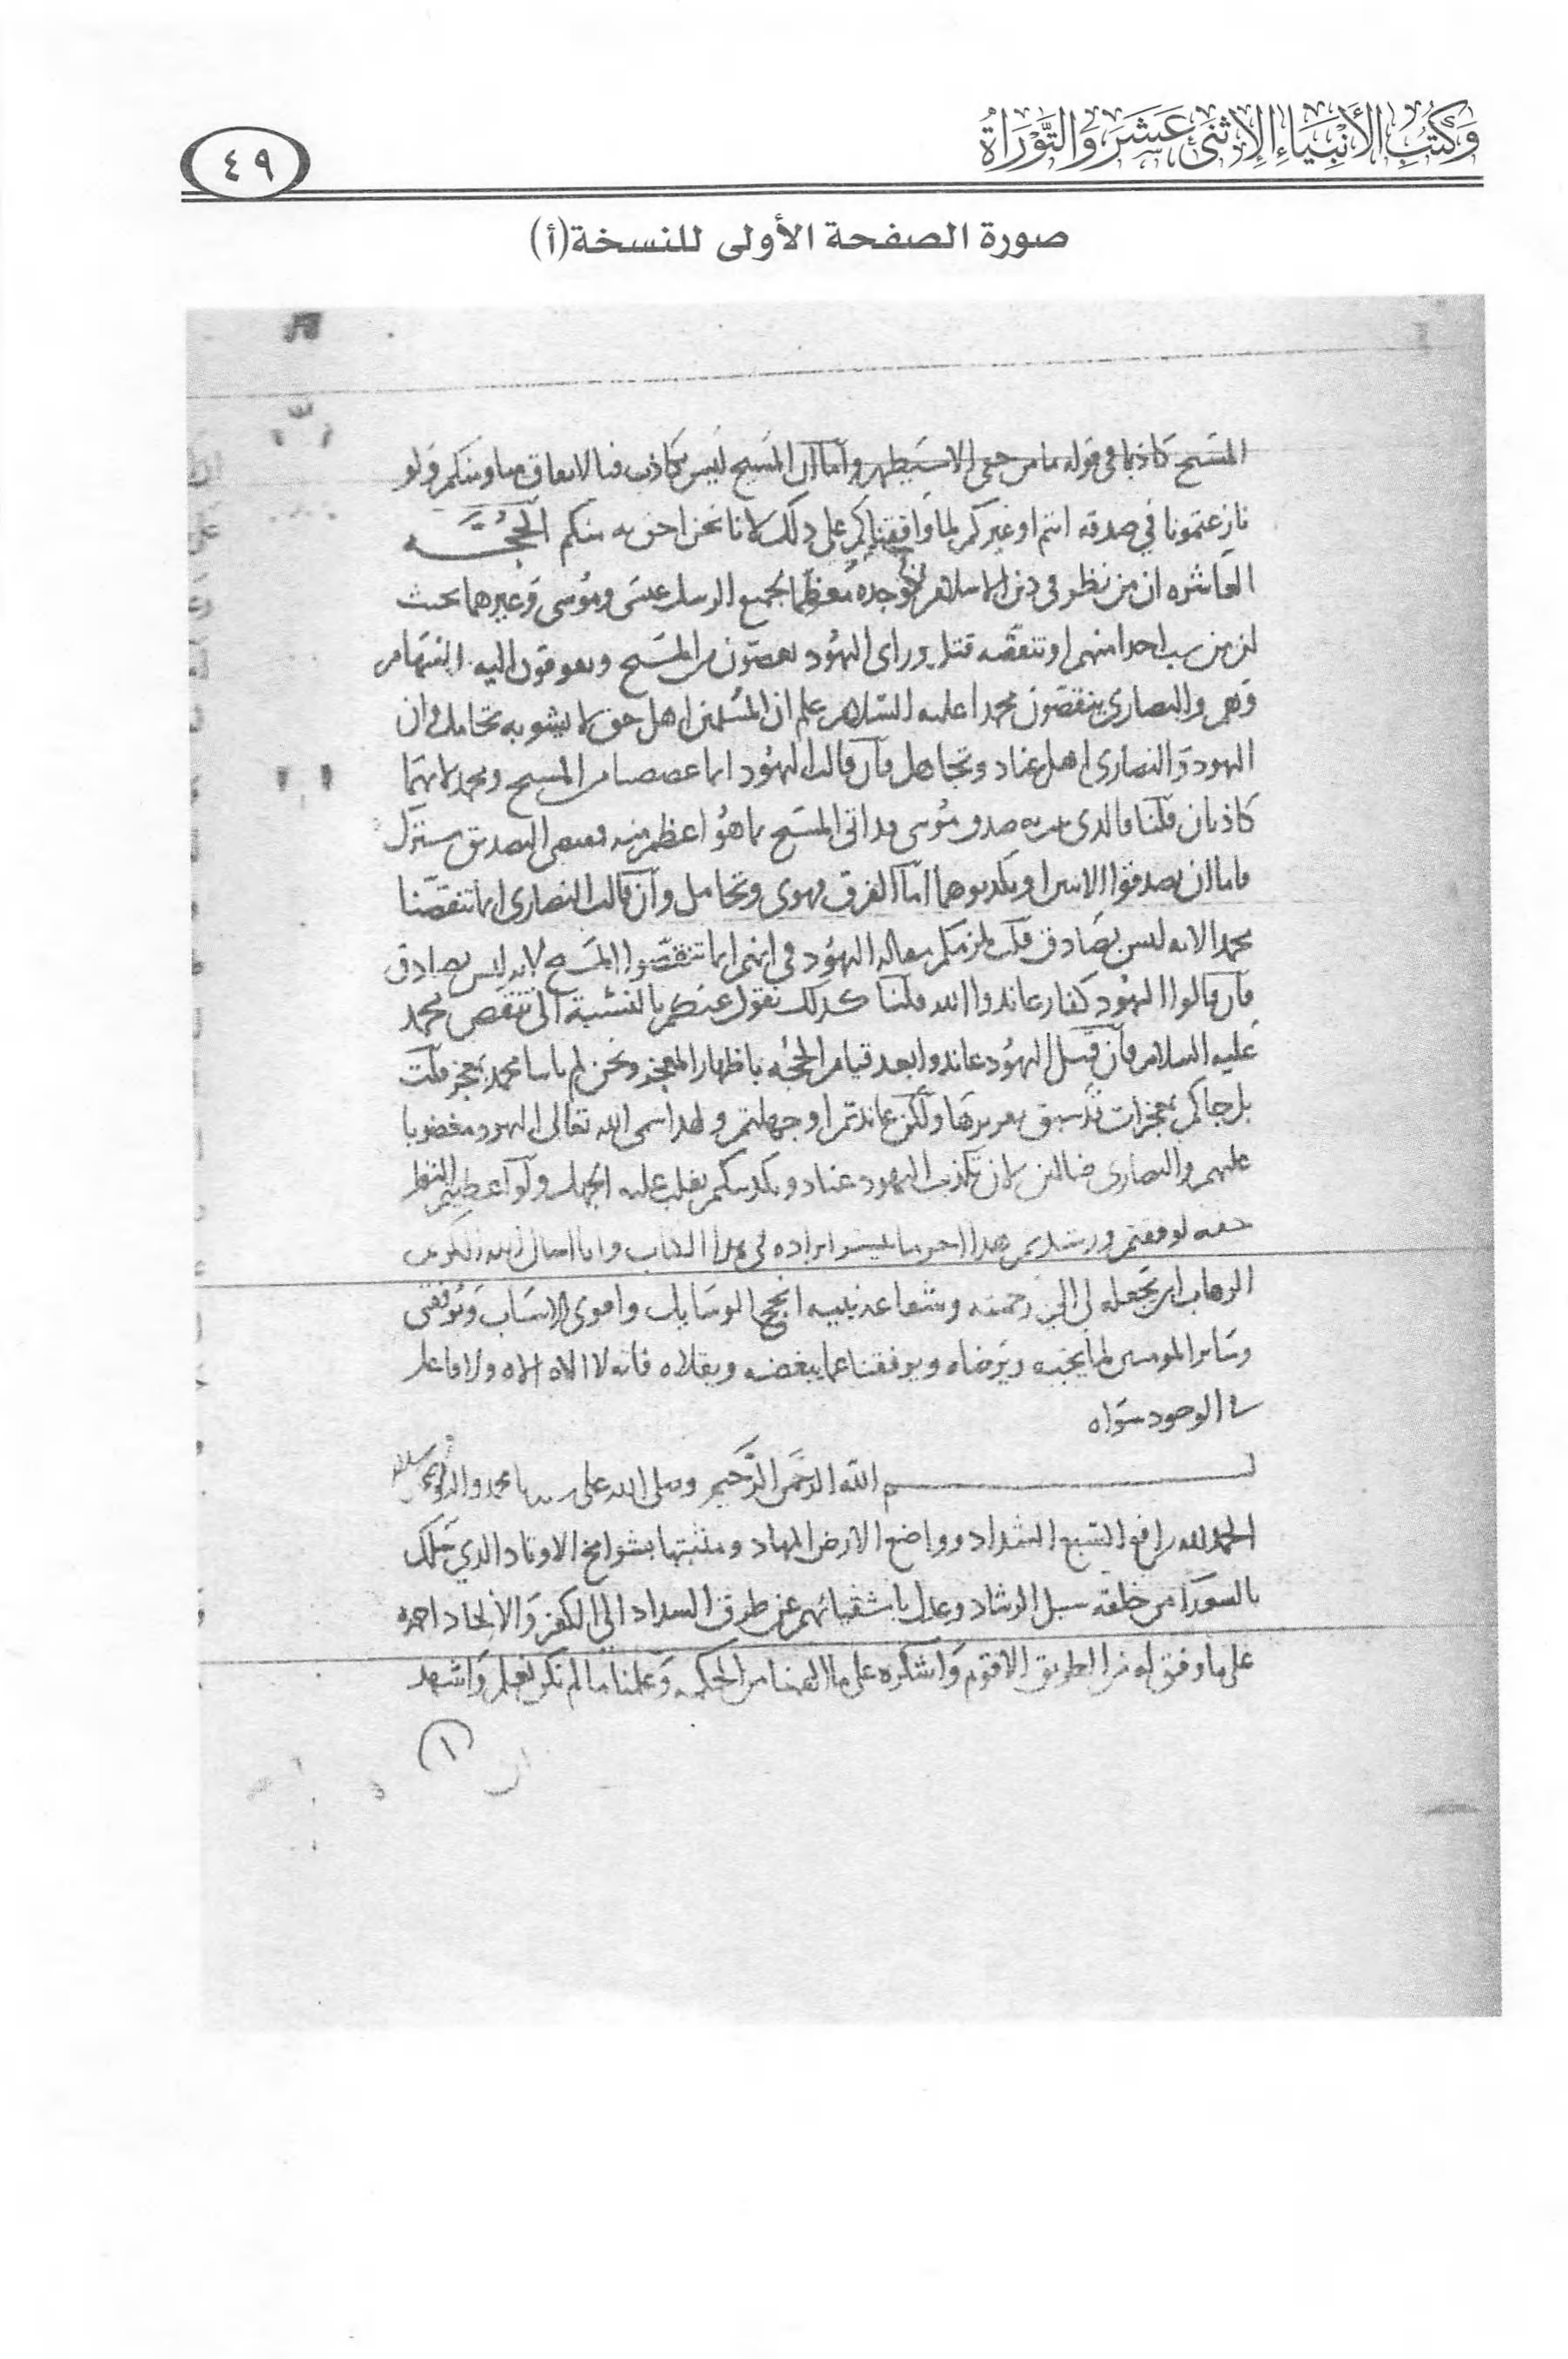 وَكُتُبِ الأَنْبِيَاءِ الإِثْنَىْ عَشَرَ وَالتَّوْرَاةُ
٤٩
صورة الصفحة الأولى للنسخة (أ)
المسيح كاذبا في قوله ما من خفي الا سيظهر واما ان المسيح ليس بكاذب فبالاتفاق منا ومنكم ولو
نازعتمونا في صدقه انتم او غيركم لما وافقناكم على ذلك لانا نحن احق به منكم الحجة
العاشره ان من نظر في دين الاسلام وجده معظما لجميع الرسل عيسى وموسى وغيرهما بحيث
ان من سب احدا منهم او تنقصه قتل وراى اليهود ينقصون من المسيح
وهم والنصارى ينقصون محمدا عليه السلام علم ان المسلمين اهل حق لا يشوبه تحامل وان
اليهود والنصارى اهل عناد وتجاهل فان قالت اليهود انما من المسيح ومحمد لانهما
كاذبان قلنا فالذى به صدق موسى قد اتى المسيح بما هو اعظم منه التصديق مشترك
فاما ان يصدقوا الاثنين او يكذبوهما اما الفرق فهوى وتحامل وان قالت النصارى انما تنقصنا
محمدا لانه ليس بصادق اليهود في انهم انما تنقصوا المسيح لانه ليس بصادق
فان قالوا اليهود كفار عاندوا الله قلنا كذلك نقول عنكم بالنسبة الى تنقص محمد
عليه السلام فان قيل اليهود عاندوا بعد قيام الحجه باظهار المعجز ونحن لم ياتنا محمد بمعجز قلت
بل جاكم بمعجزات قد سبق تقريرها ولكن عاندتم او جهلتم ولهذا سمى الله تعالى اليهود مغضوبا
عليهم والنصارى ضالين لان تكذيب اليهود عناد وتكذيبكم يغلب عليه الجهل ولو اعطيتم النظر
حقه لوفقتم ورشدتم هذا اخر ما تيسر ايراده في هذا الكتاب وانا اسال الله الكريم
الوهاب ان يجعله لي الى رحمته وشفاعة نبيه انجح الوسايل واقوى الاسباب ويوفقني
وساير المومنين لما يحبه ويرضاه ويوفقنا عما يبغضه ويقلاه فانه لا اله الاه ولا فاعل
في الوجود سواه
بسم الله الرحمن الرحيم وصلى الله على سيدنا محمد واله
الحمد لله رافع السبع الشداد وواضع الارض المهاد ومثبتها بشوامخ الاوتاد الذي سلك
بالسعدا من خلقه سبل الرشاد وعدل باشقيائهم عن طرق السداد الى الكفر والالحاد احمده
على ما وفق له من الطريق الاقوم واشكره على ما الهمنا من الحكم وعلمنا ما لم نكن نعلم واشهد
١